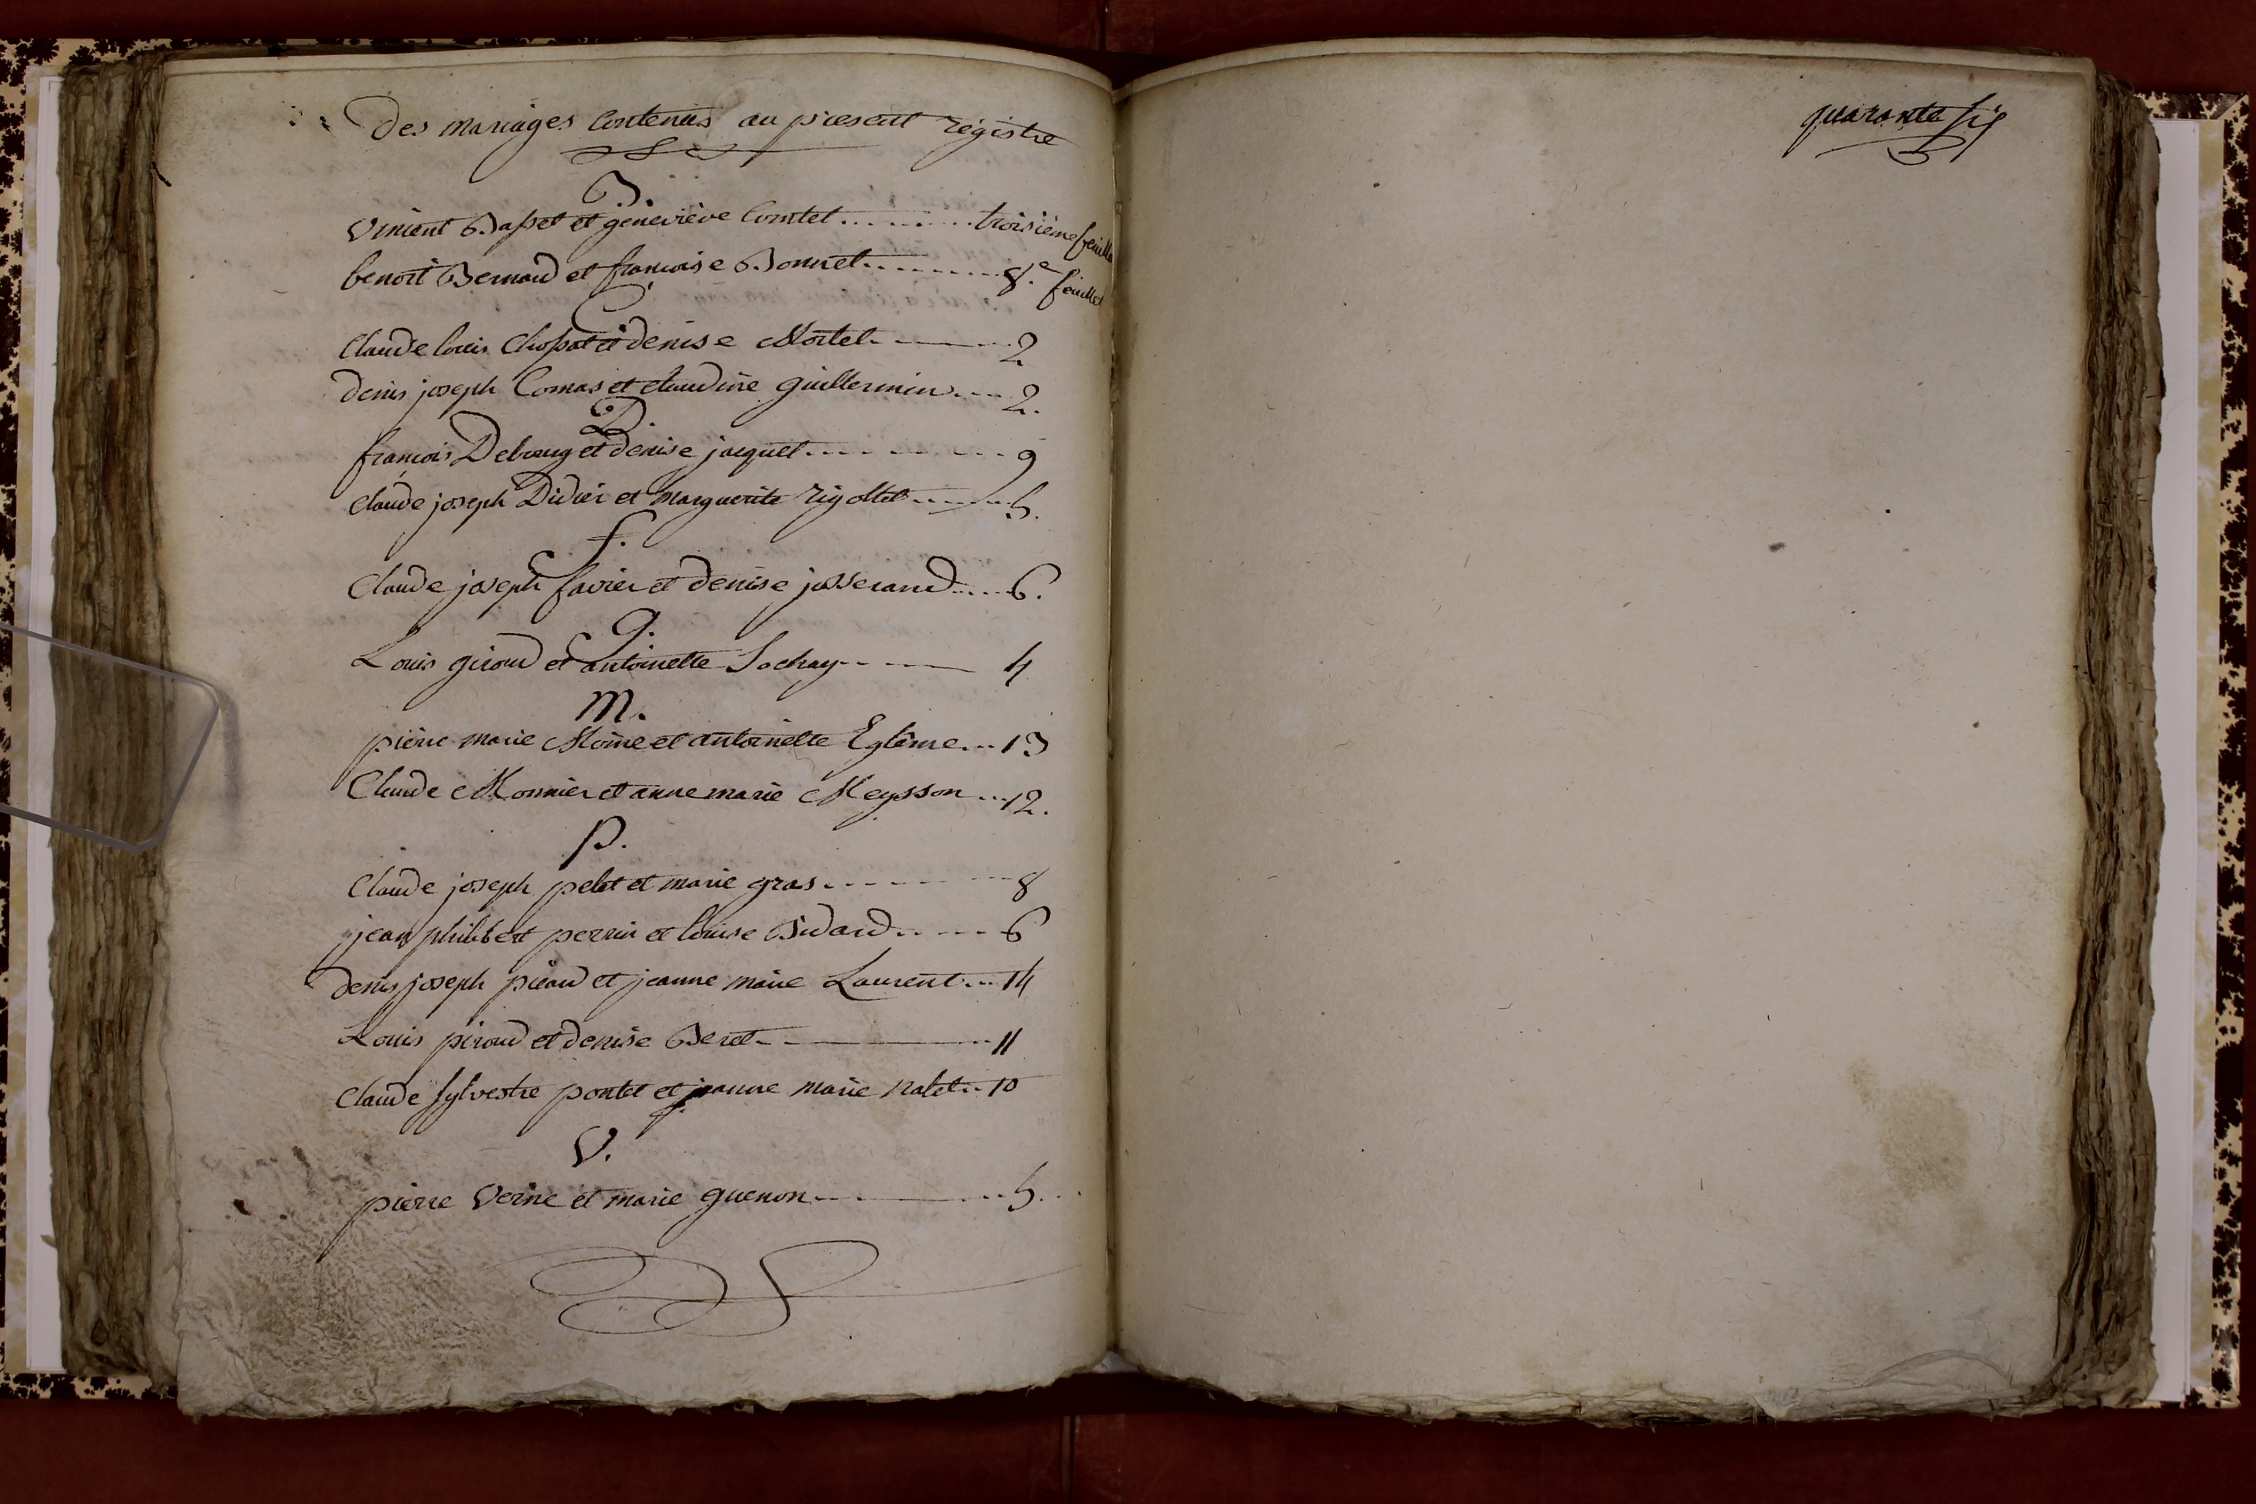 Des mariages Contenus au present registre
B.
Vincent Basset et geneviève Comtet ......... troisième feuillet
benoit Bernard et françoise Bonnet ......... 8.e feuillet
C
Claude louis Chossat et denise Mortel ......... 2
denis joseph Comas et claudine guillermin .... 2.
D.
françois Debourg et denise jacquet ......... 9
Claude joseph Didier et marguerite rigollet ......... 5.
f.
Claude joseph favier et denise josserand .... 6.
g.
Louis giroud et antoinette Sochay ......... 4
M.
pierre marie Moine et antoinette Eglême ... 13
Claude Monnier et anne marie Meysson ... 12.
p.
Claude joseph pelet et marie gras ......... 8
jean philibert perrin et louise Bidard ..... 6
denis joseph picard et jeanne marie Laurent ... 14
Louis piroud et denise Beret ......... 11
Claude Sylvestre pontet et jeanne marie nalet .. 10
V.
pierre Verne et marie guenon ......... 5.
quarante six